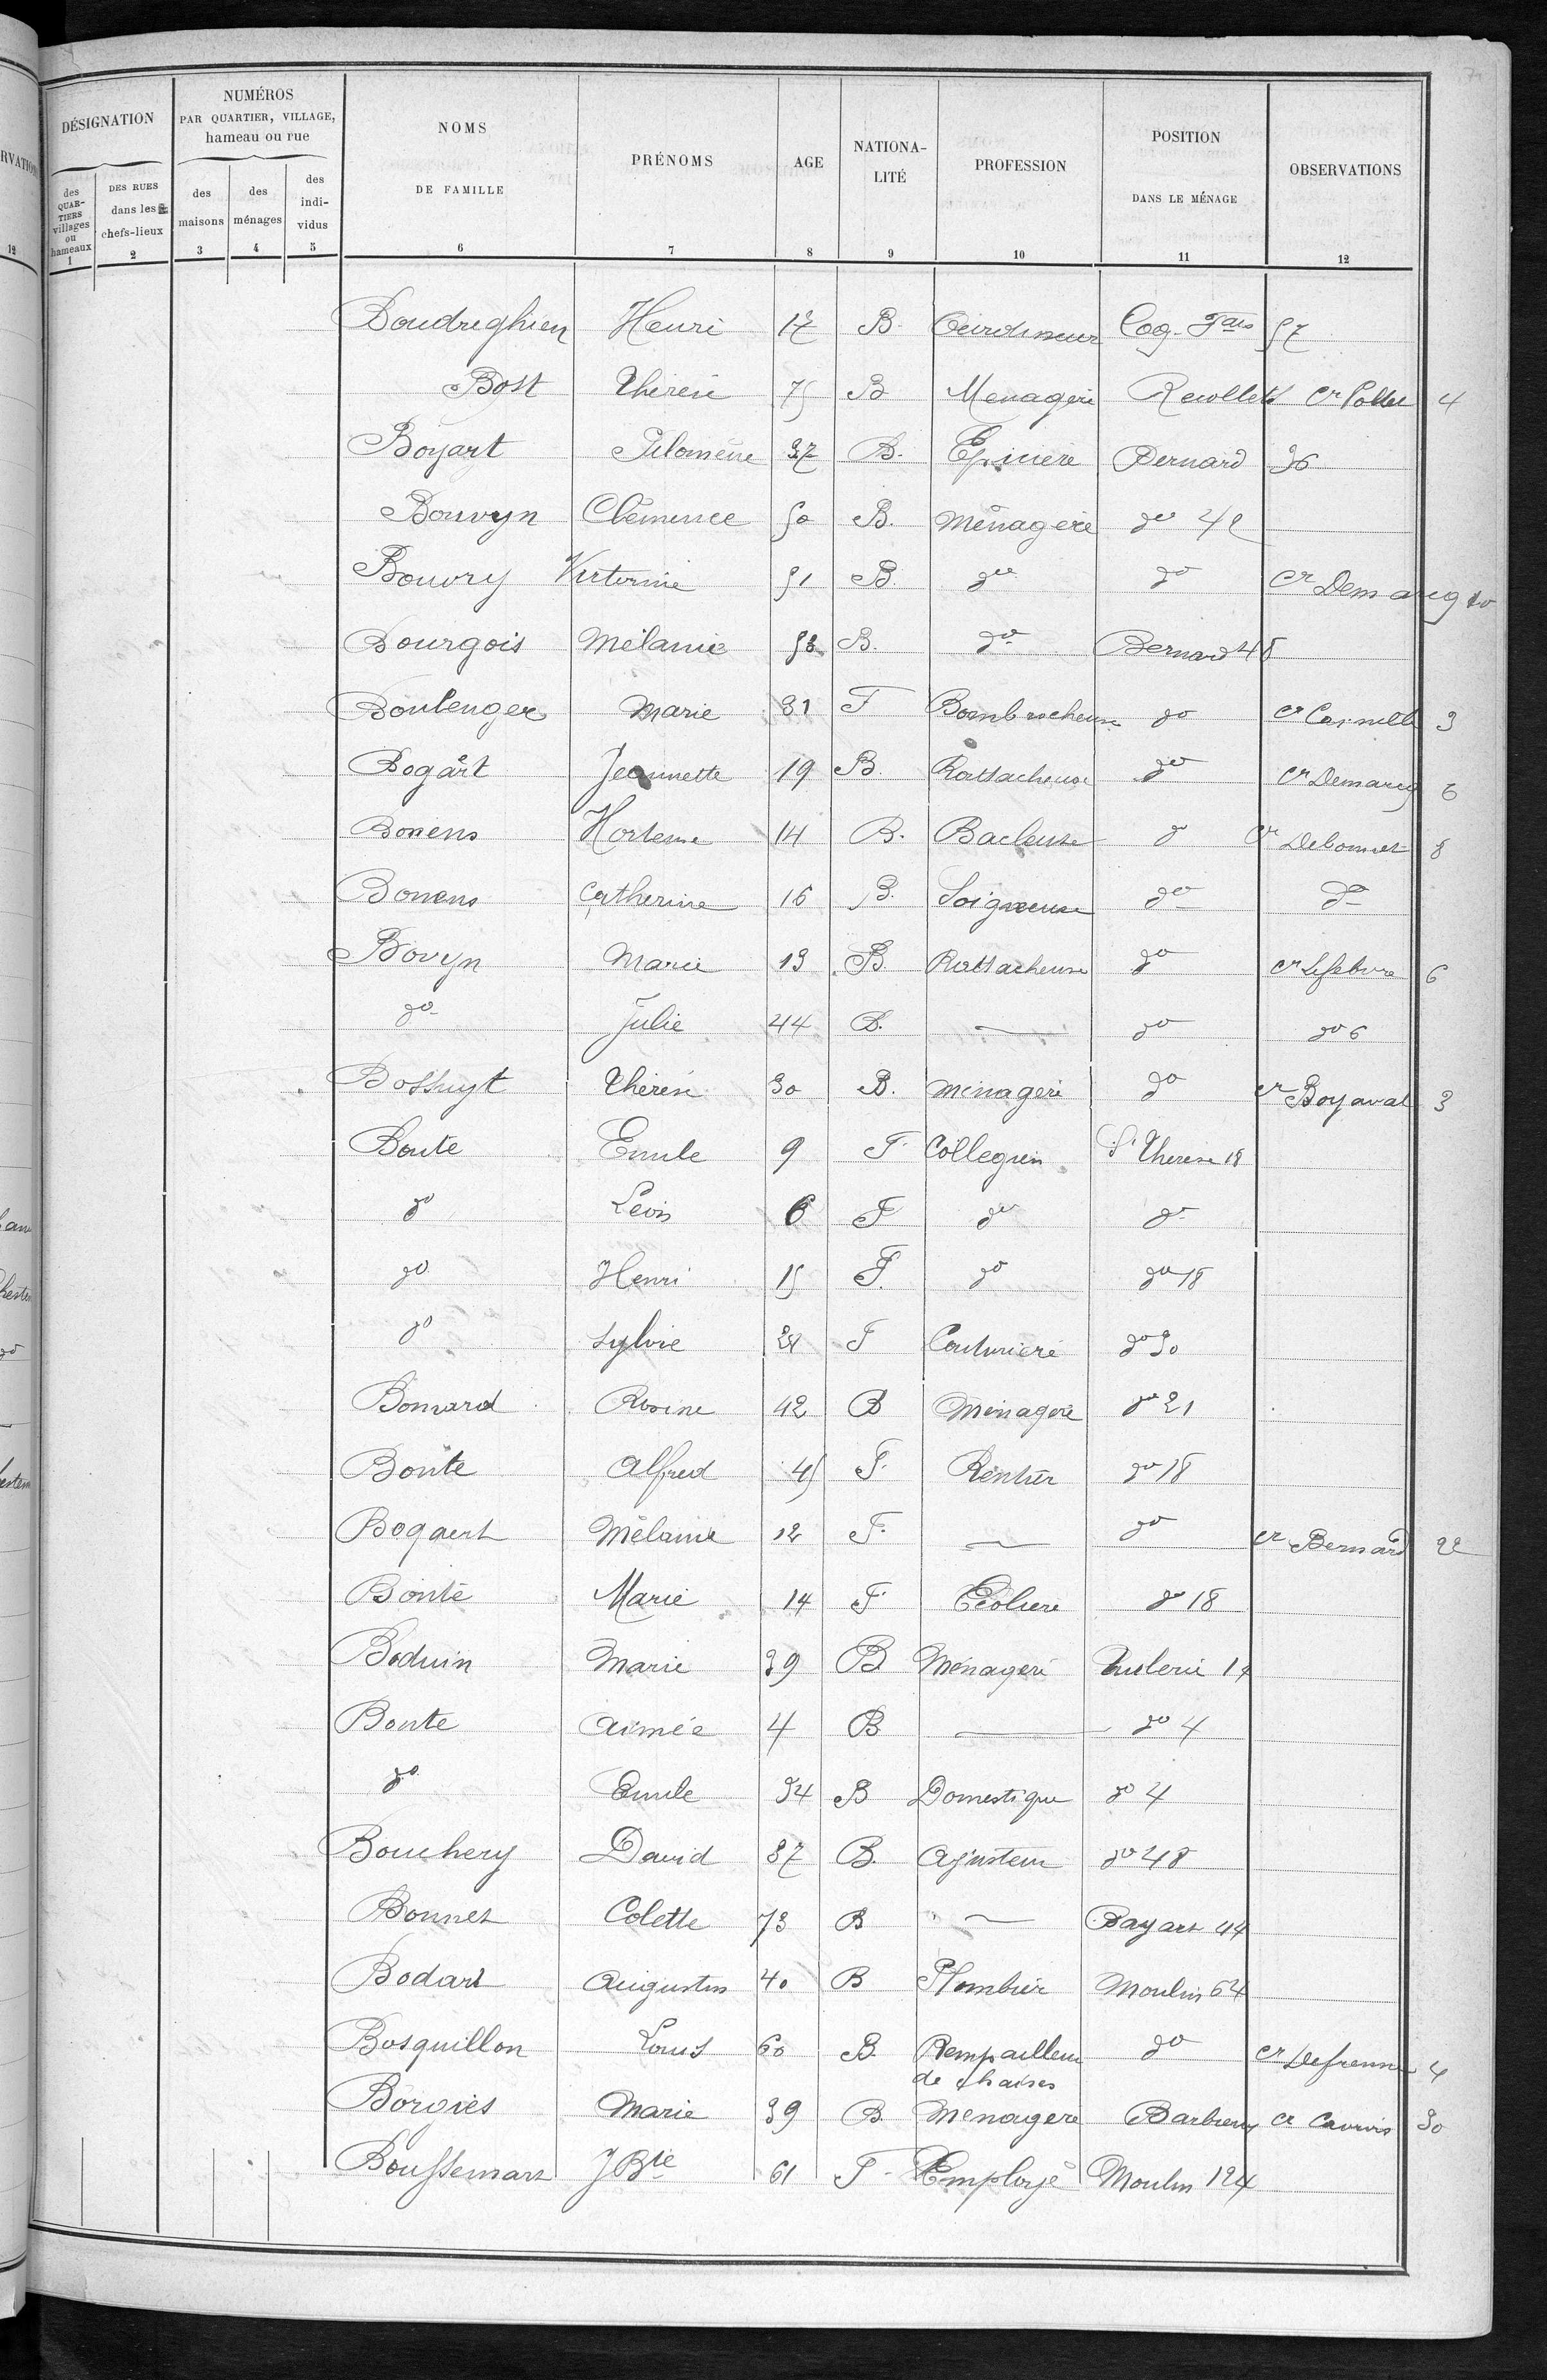 DÉSIGNATION
NUMÉROS
PAR QUARTIER, VILLAGE,
hameau ou rue
NOMS
DE FAMILLE
PRÉNOMS
AGE
NATIONA-
LITÉ
PROFESSION
POSITION
DANS LE MÉNAGE
OBSERVATIONS
des
QUAR-
TIERS
villages
ou
hameaux
DES RUES
dans les
chefs-lieux
des
maisons
des
ménages
des
indi-
vidus
1 2 3 4 5 6 7 8 9 10 11 12
Boudreghien Henri 17 B Ourdisseur Coq-Fais 57
Bost Thérèse 75 B Menagère Recollets cr Pollet 4
Boyart Filomène 37 B. Epicière Bernard 36
Bouvyn Clémence 50 B. Ménagère do 42
Bouvry Victorine 51 B. do do cr Demarcq 10
Bourgois Mélanie 53 B. do Bernard 48
Boulenger Marie 31 F Bombrocheuse do cr 3
Bogart Jeannette 19 B. Rattacheuse do cr Demarcq 6
Bonens Hortense 14 B. Bacleuse do cr Debonnet 8
Bonens Catherine 16 B. Soigneuse do do
Bovyn Marie 13 B. Rattacheuse do cr Lefebvre 6
do Julie 44 B. — do do 6
Bossuyt Thérèse 30 B. Ménagère do cr Boyaval 3
Bonte Emile 9 F Collegien St Thérèse 18
do Léon 6 F do do
do Henri 15 F. do do 18
do Sylvie 24 F Couturière do 30
Bonnard Rosine 42 B Ménagère do 21
Bonte Alfred 45 F. Rentier do 18
Bogaert Mélanie 12 F. — do cr Bernard 22
Bonte Marie 14 F Ecolière do 18
Boduin Marie 39 B Ménagère Tuilerie 14
Bonte Aimée 4 B — do 4
do Emile 34 B Domestique do 4
Bouchery David 37 B. Ajusteur do 48
Bonnet Colette 73 B — Bayart 44
Bodart Augustin 40 B Plombier Moulin 64
Bosquillon Louis 60 B. Rempailleur do cr Defrenne 4
de chaises
Borgies Marie 39 B. Menagère Barbieux cr 30
Boussemart J Bte 61 F Employé Moulin 124